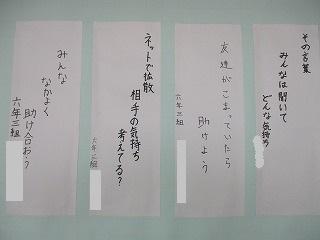 その言葉
みんなは聞いて
どんな気持ち
友達がこまっていたら
助けよう
六年三組
ネットで拡散
相手の気持ち
考えてる?
六年三組
みんな
なかよく
助け合お?
六年三組